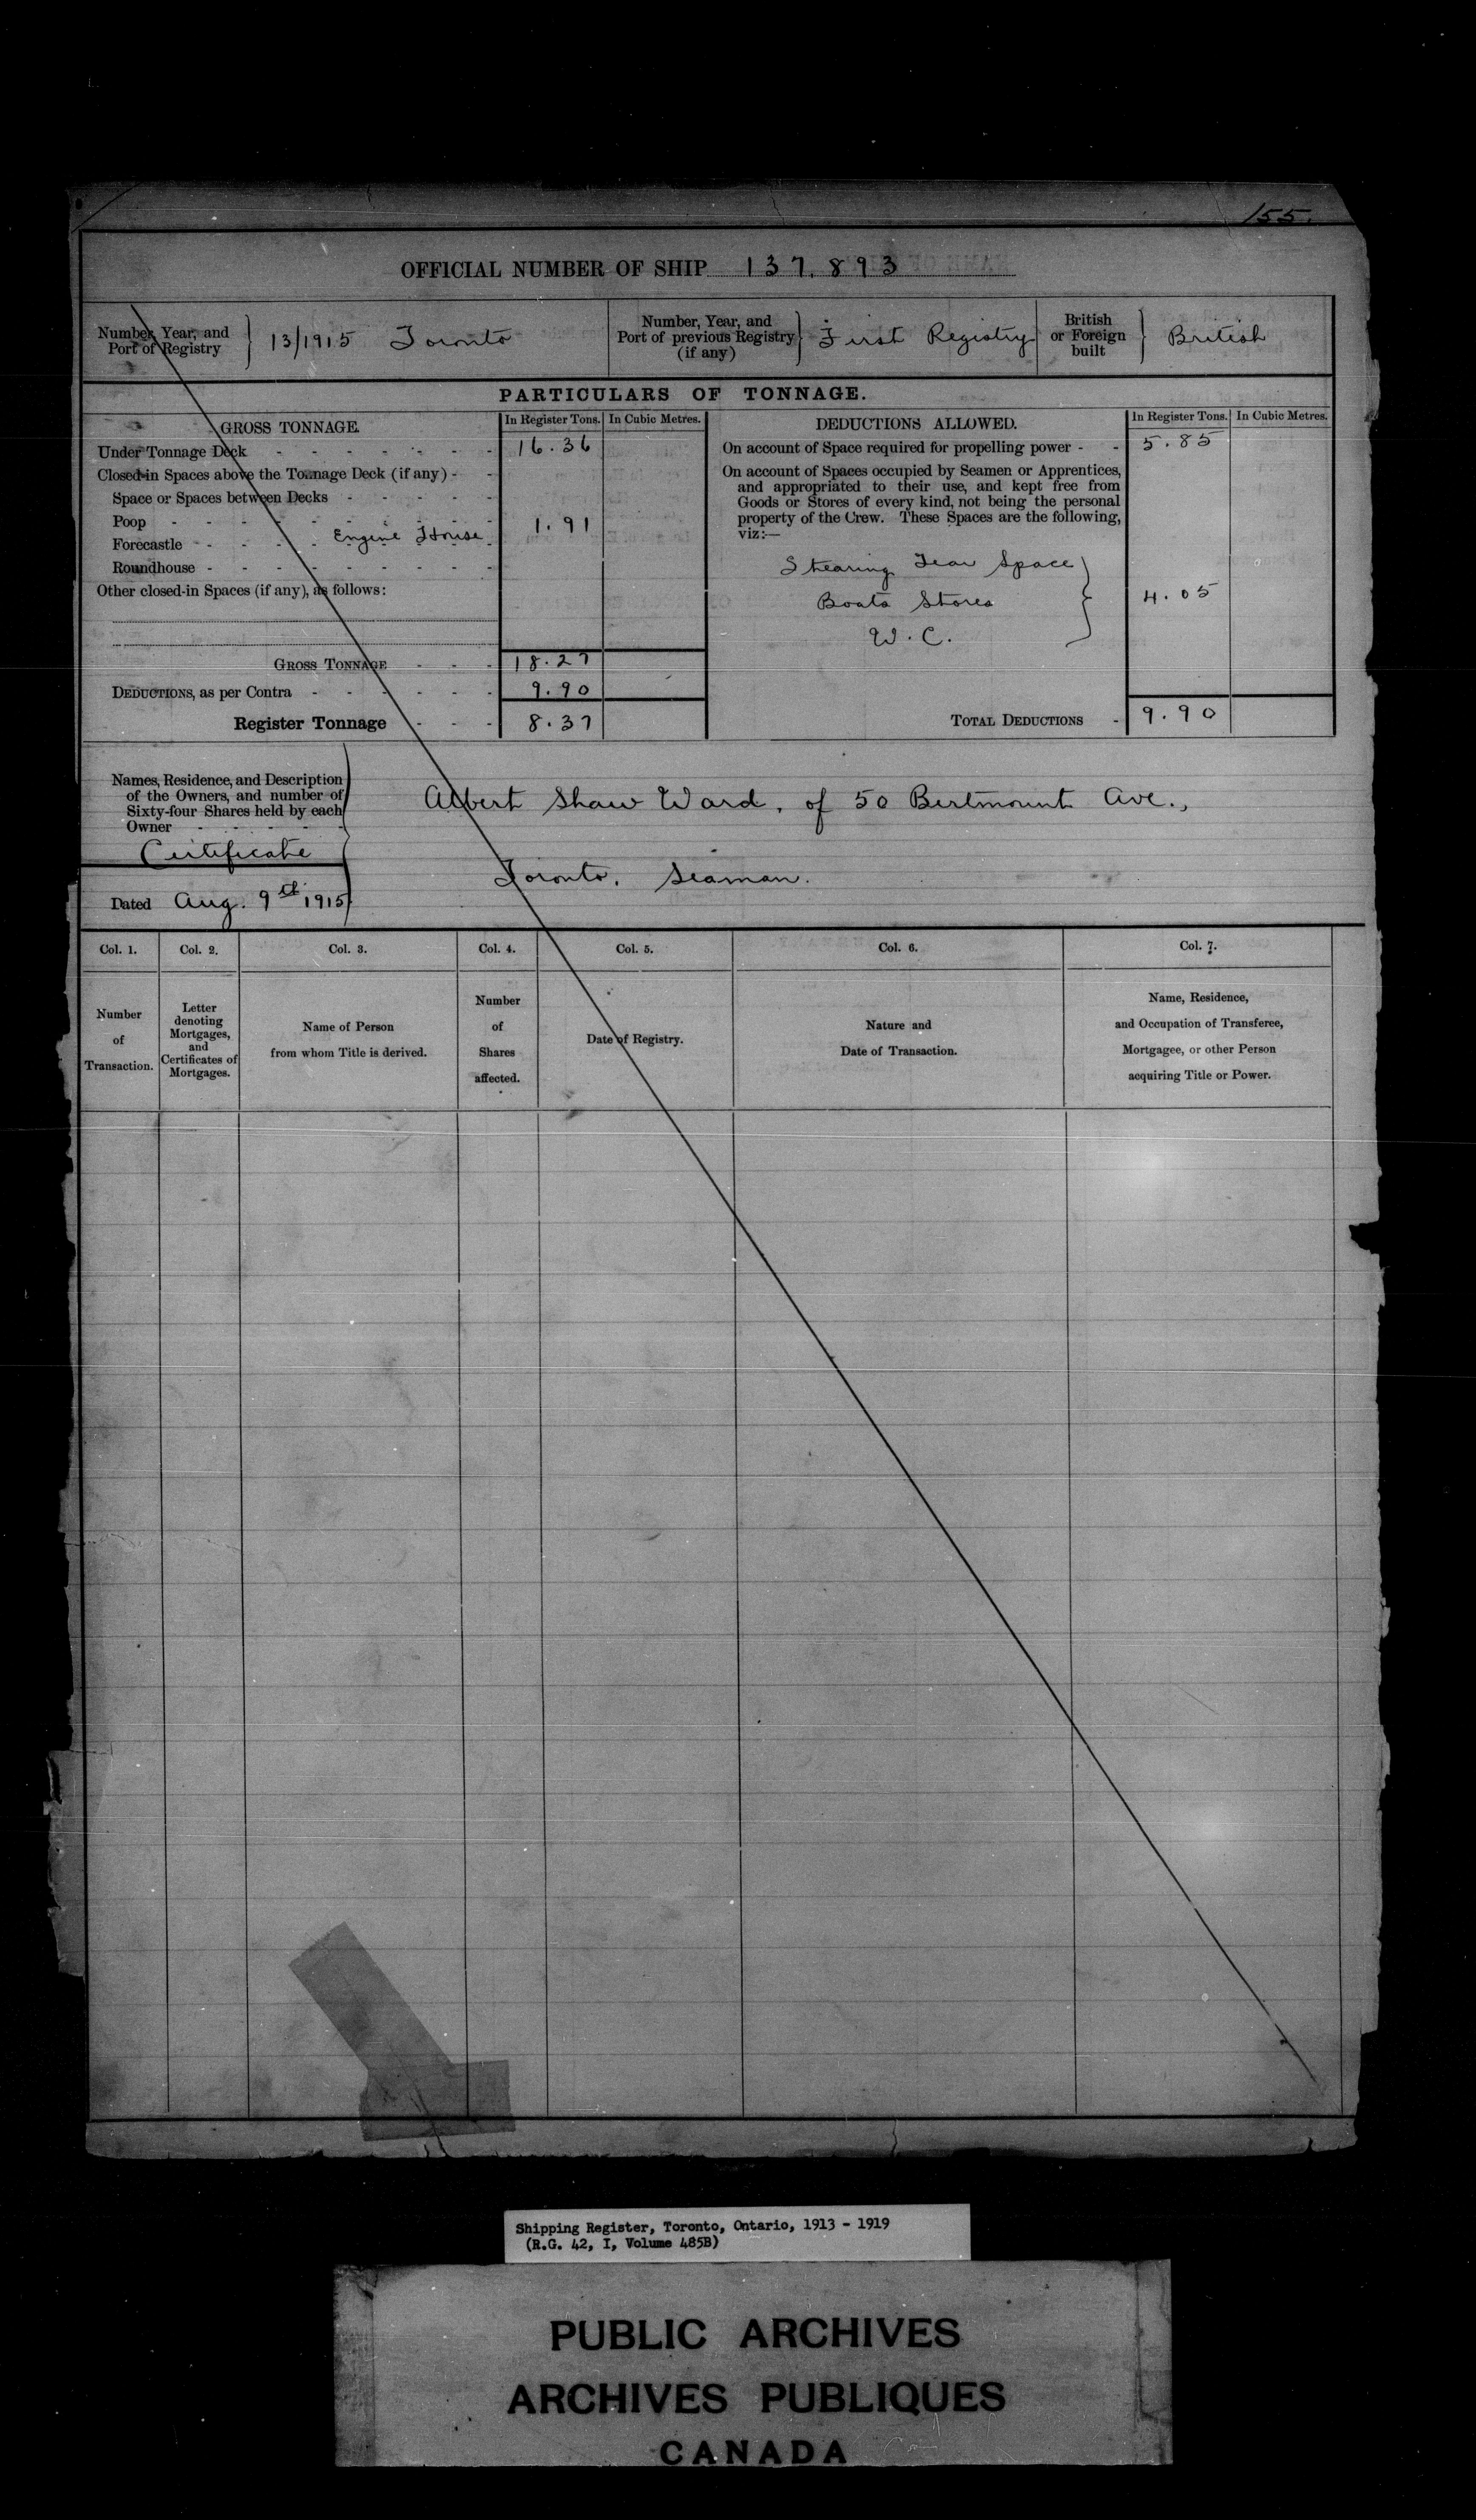 155.
OFFICIAL NUMBER OF SHIP 137.893
Number, Year, and Port of Registry } 13/1915 Toronto
Number, Year, and Port of previous Registry (if any) } First Registry
British or Foreign built } British
PARTICULARS OF TONNAGE.
GROSS TONNAGE. In Register Tons. In Cubic Metres.
Under Tonnage Deck - - - - - - - 16.36
Closed-in Spaces above the Tonnage Deck (if any) - -
Space or Spaces between Decks - - - - -
Poop - - - - - - - - -
Engine House 1.91
Forecastle - - - - - - - -
Roundhouse - - - - - - - -
Other closed-in Spaces (if any), as follows:
GROSS TONNAGE - - - 18.27
DEDUCTIONS, as per Contra - - - - - - 9.90
Register Tonnage - - - 8.37
DEDUCTIONS ALLOWED. In Register Tons. In Cubic Metres.
On account of Space required for propelling power - - 5.85
On account of Spaces occupied by Seamen or Apprentices,
and appropriated to their use, and kept free from
Goods or Stores of every kind, not being the personal
property of the Crew. These Spaces are the following,
viz:—
Stearing Gear Space
Boats Stores } 4.05
W.C.
TOTAL DEDUCTIONS - 9.90
Names, Residence, and Description
of the Owners, and number of
Sixty-four Shares held by each
Owner - - - - -
Certificate
Dated Aug. 9th 1915
Albert Shaw Ward, of 50 Bertmount Ave.,
Toronto, Seaman.
Col. 1. Col. 2. Col. 3. Col. 4. Col. 5. Col. 6. Col. 7.
Number of Transaction.
Letter denoting Mortgages, and Certificates of Mortgages.
Name of Person from whom Title is derived.
Number of Shares affected.
Date of Registry.
Nature and Date of Transaction.
Name, Residence, and Occupation of Transferee, Mortgagee, or other Person acquiring Title or Power.
Shipping Register, Toronto, Ontario, 1913 - 1919
(R.G. 42, I, Volume 485B)
PUBLIC ARCHIVES
ARCHIVES PUBLIQUES
CANADA